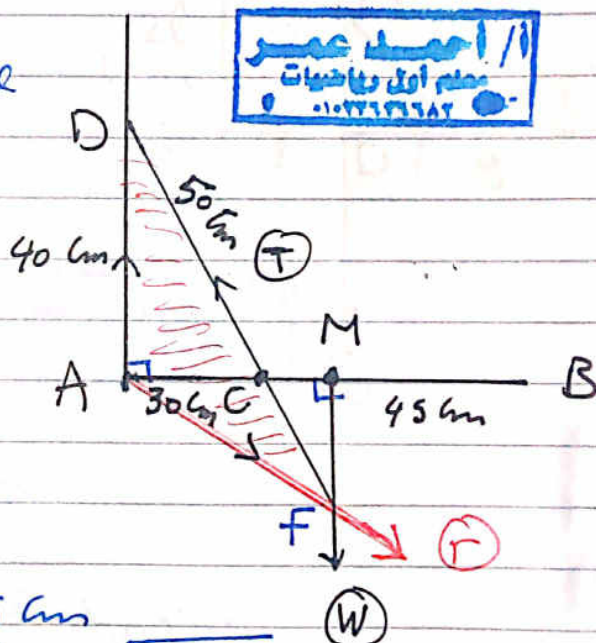 أ/ أحمد عمر
معلم أول رياضيات
٠١٠٢٢٦٣٦٦٨٢
D
50 Cm
T
40 Cm
M
A
30 Cm
C
45 Cm
B
F
r
cm
W